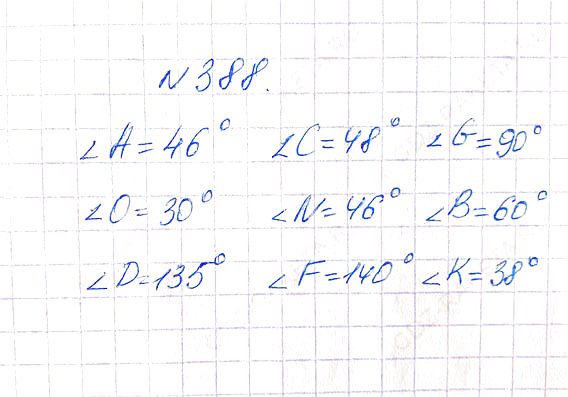 N 388.
∠A = 46° ∠C = 48° ∠G = 90°
∠O = 30° ∠N = 46° ∠B = 60°
∠D = 135° ∠F = 140° ∠K = 38°